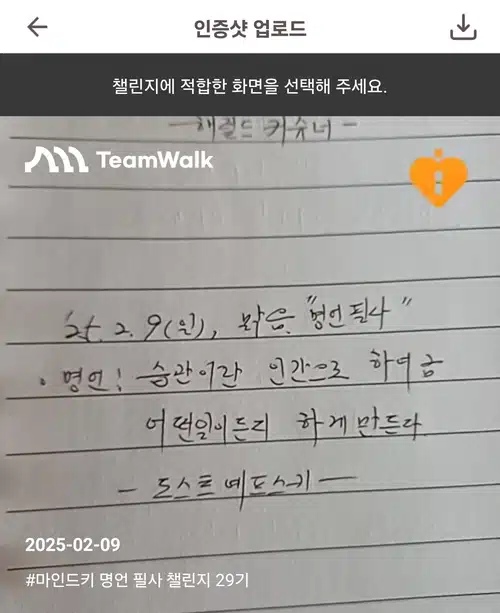 인증샷 업로드
챌린지에 적합한 화면을 선택해 주세요.
- 해럴드 커슈너 -
TeamWalk
'25. 2. 9(일), 맑음 "명언 필사"
• 명언! 습관이란 인간으로 하여금
어떤일이든지 하게 만든다.
- 도스토예프스키 -
2025-02-09
#마인드키 명언 필사 챌린지 29기